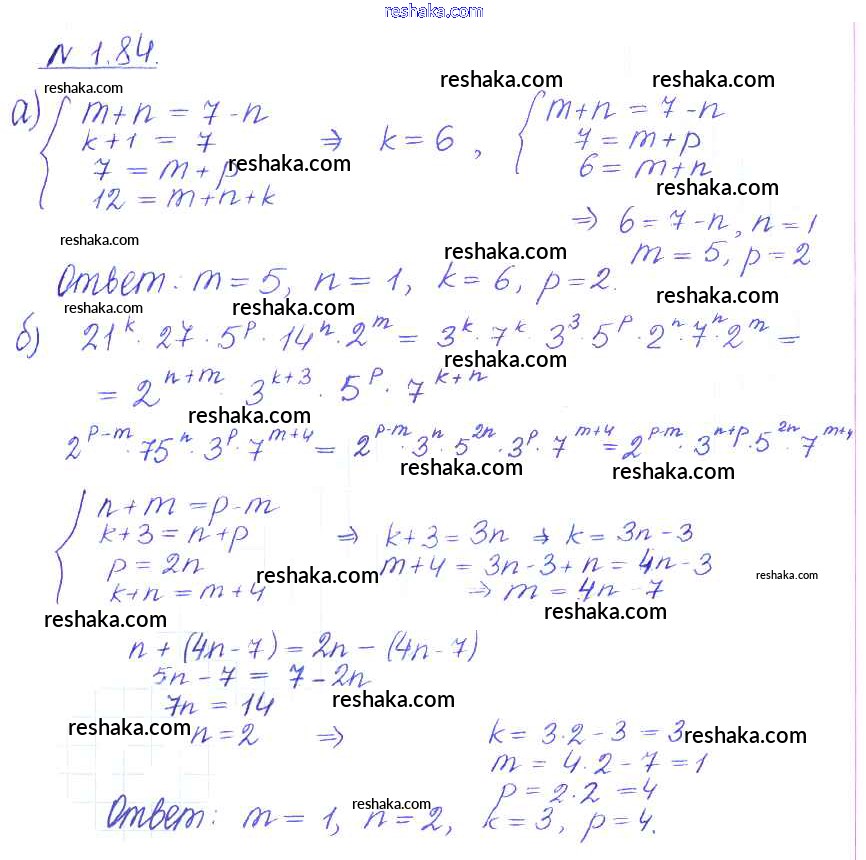 reshaka.com
N 1.84.
reshaka.com reshaka.com reshaka.com
а) { m+n = 7-n
k+1 = 7
7 = m+p
12 = m+n+k
⇒ k=6, { m+n = 7-n
7 = m+p
6 = m+n
reshaka.com reshaka.com
⇒ 6=7-n, n=1
m=5, p=2
reshaka.com reshaka.com
Ответ: m=5, n=1, k=6, p=2.
reshaka.com reshaka.com reshaka.com
б) 21^k · 27 · 5^p · 14^n · 2^m = 3^k · 7^k · 3^3 · 5^p · 2^n · 7^n · 2^m =
reshaka.com
= 2^{n+m} · 3^{k+3} · 5^p · 7^{k+n}
reshaka.com
2^{p-m} · 75^n · 3^p · 7^{m+4} = 2^{p-m} · 3^n · 5^{2n} · 3^p · 7^{m+4} = 2^{p-m} · 3^{n+p} · 5^{2n} · 7^{m+4}
reshaka.com reshaka.com
{ n+m = p-m
k+3 = n+p ⇒ k+3 = 3n ⇒ k = 3n-3
p = 2n m+4 = 3n-3+n = 4n-3
k+n = m+4 ⇒ m = 4n-7
reshaka.com reshaka.com
reshaka.com reshaka.com
n + (4n-7) = 2n - (4n-7)
5n-7 = 7-2n
7n = 14
reshaka.com
n=2 ⇒ k = 3·2-3 = 3
reshaka.com reshaka.com
m = 4·2-7 = 1
p = 2·2 = 4
reshaka.com
Ответ: m=1, n=2, k=3, p=4.